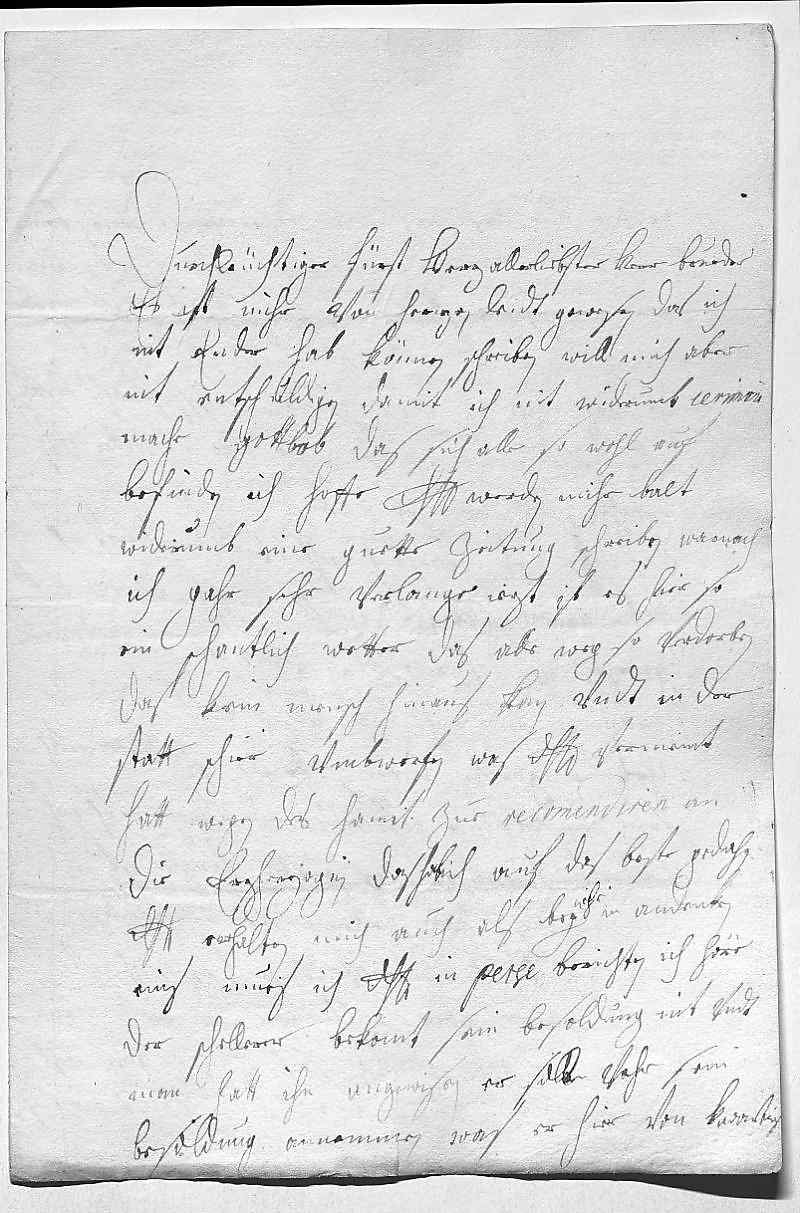 Durchleüchtiger fürst herzallerliebster herr brueder
Es ist mihr von herzen leidt gewesen das ich
nit Ender hab können schreiben will mich aber
nit entschuldigen damit ich nit widerumb
mache gottlob das sich alle so wohl auf
befinden ich hoffe werden mihr balt
widerumb eine guette Zeitung schreiben warnach
ich gahr sehr verlange iezt ist es hier so
ein schantlich wetter das alle weg so verdorben
das kein mensch hinaus kan undt in der
statt schier umbwerfen was vermeint
hatt wegen des zue recomendiren an
die Erzherzogin das hab ich auf das beste gethan
erhalten mich auch als bey ihr in andenken
eins mues ich in berichten ich höre
der bekomt sein besoldung nit undt
man hatt ihn angewisen er soll sein
besoldung annemmen was er hier von